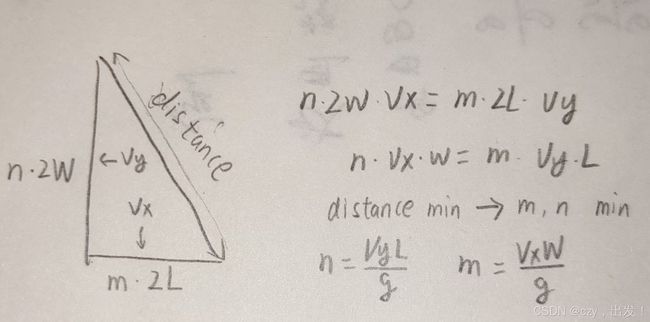 distance
n·2W
←Vy
Vx
↓
m·2L
n·2W·Vx = m·2L·Vy
n·Vx·W = m·Vy·L
distance min → m, n min
n = VyL/g
m = VxW/g
CSDN @czy，出发！